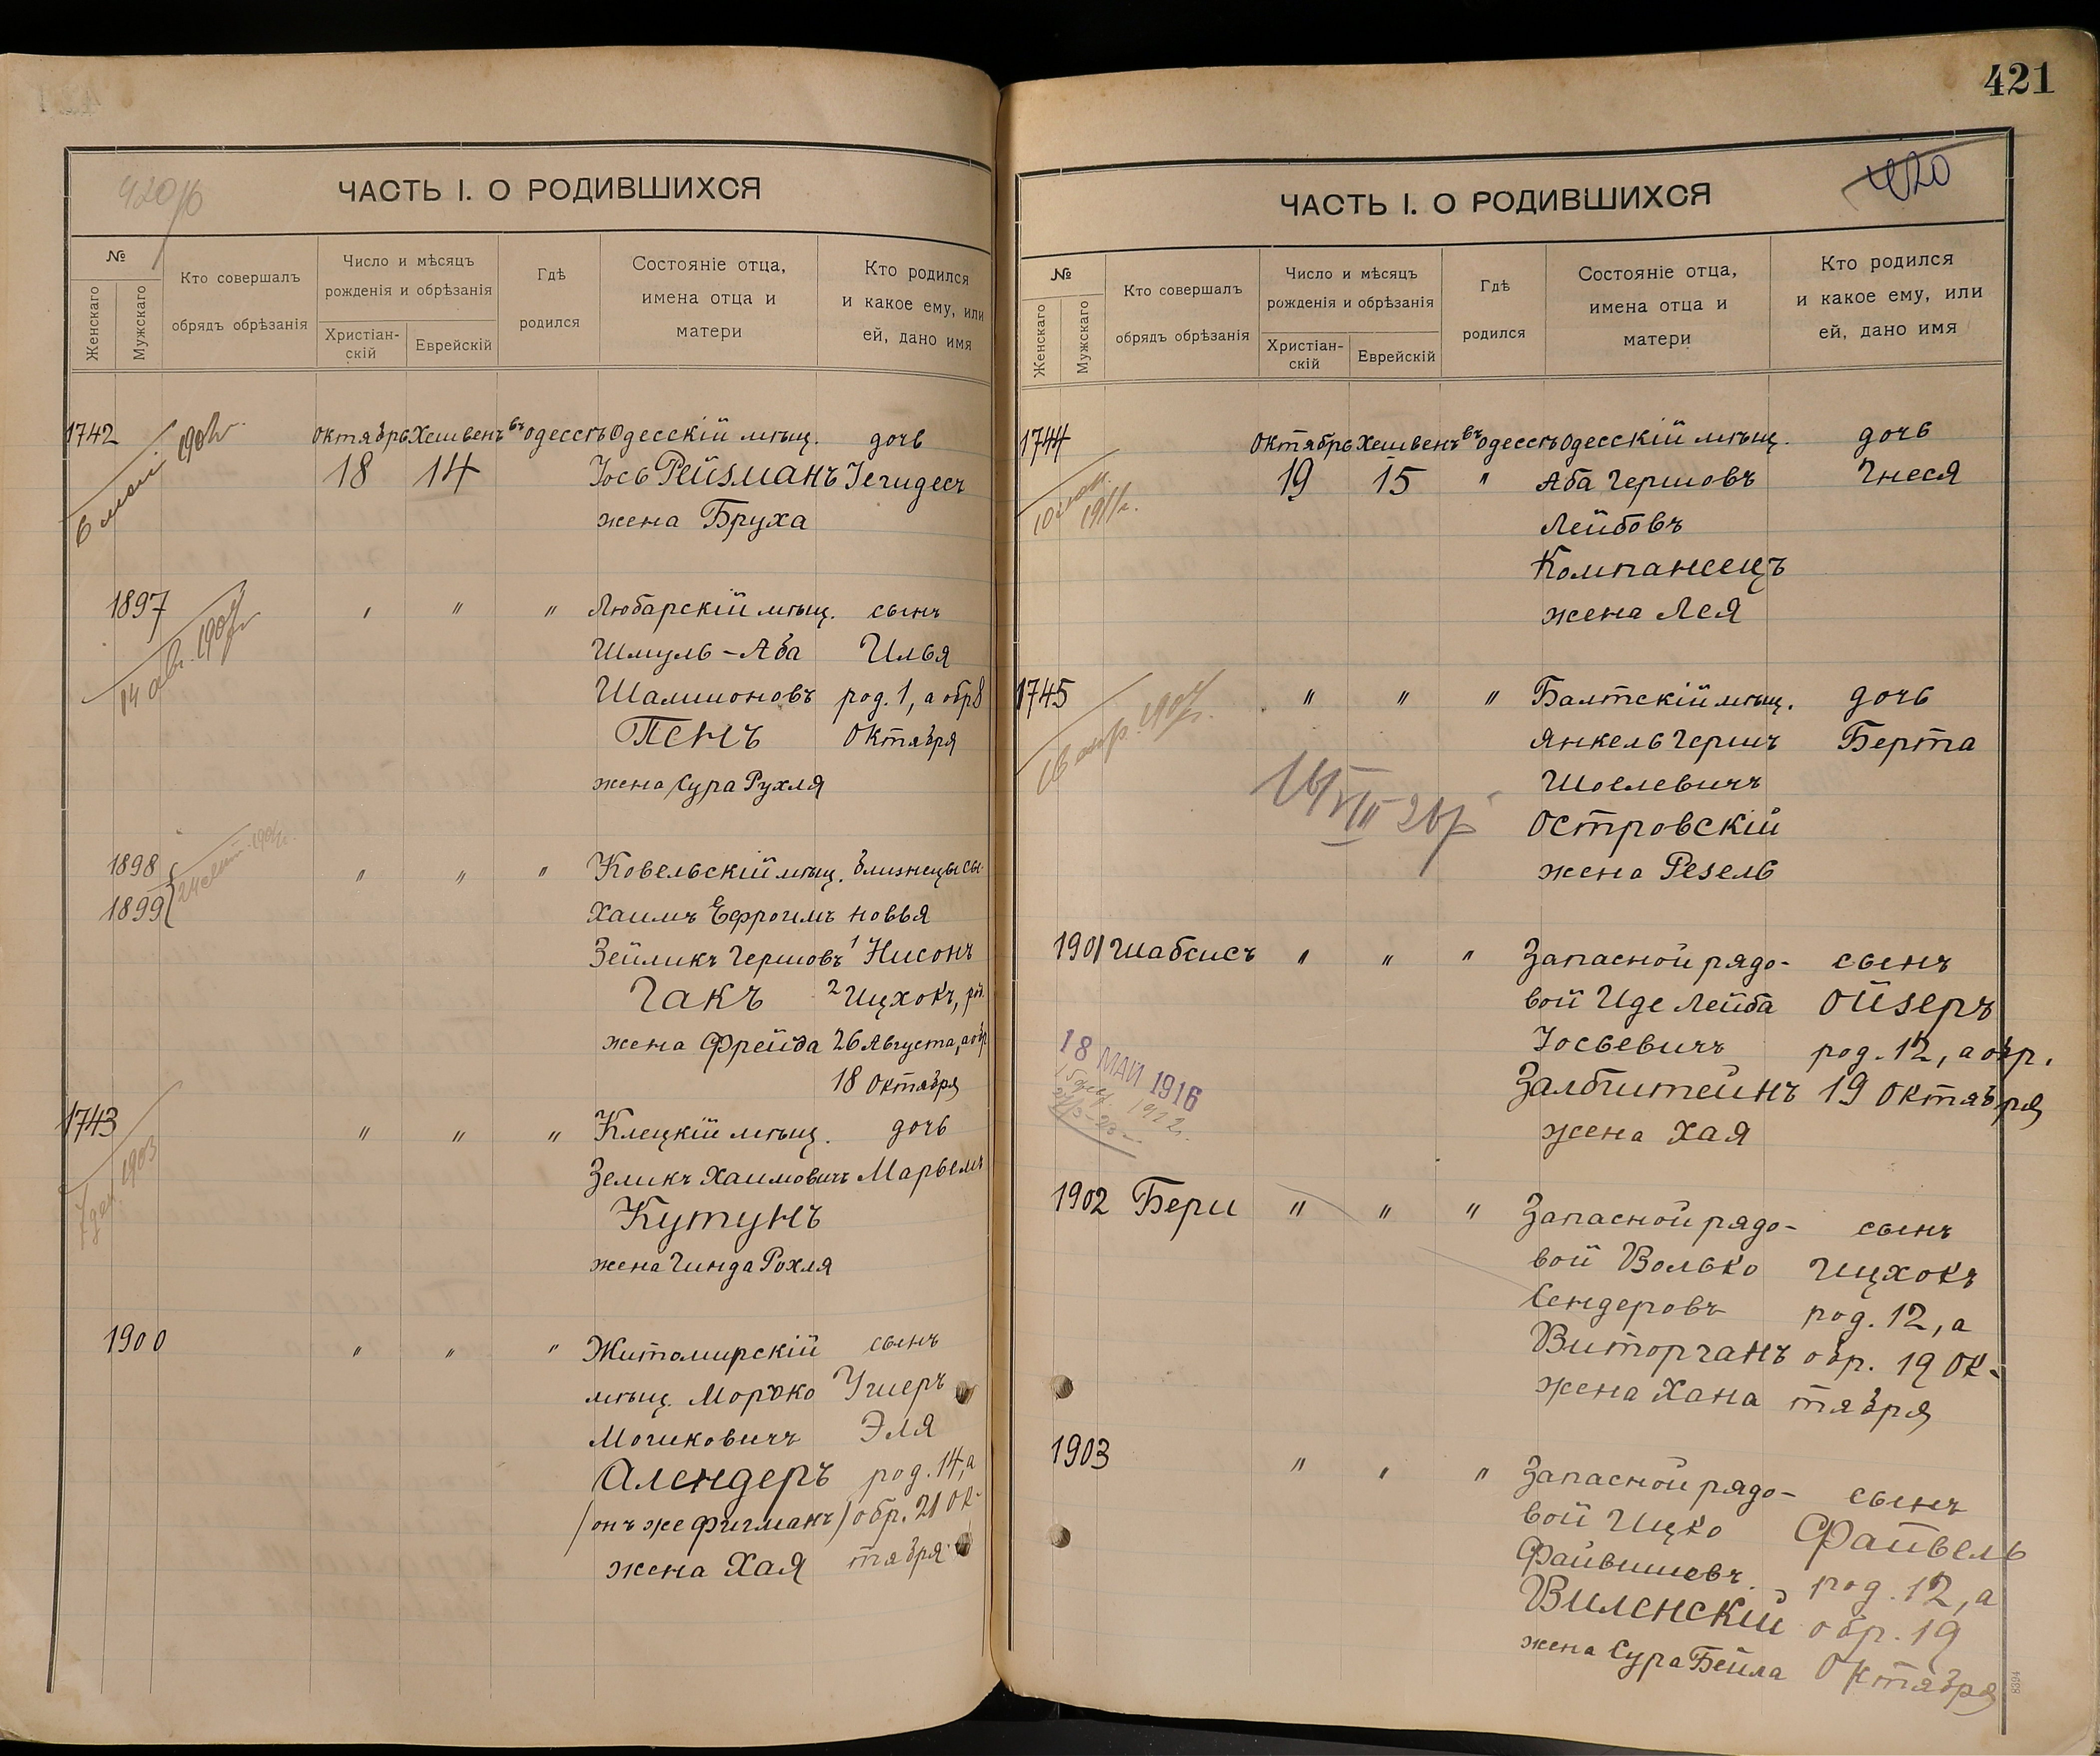 421
ЧАСТЬ I. О РОДИВШИХСЯ
№
Женскаго
Мужскаго
Кто совершалъ
обрядъ обрѣзанія
Число и мѣсяцъ
рожденія и обрѣзанія
Христіан-
скій
Еврейскій
Гдѣ
родился
Состояніе отца,
имена отца и
матери
Кто родился
и какое ему, или
ей, дано имя
1742 Октябрь Хешвенъ въ Одессѣ Одесскій мѣщ. дочь
18 14 Іось Рейзманъ Іегидесъ
жена Бруха
6 мая
1897 " " " Любарскій мѣщ. сынъ
Шмуль-Аба Илья
Шамшоновъ род. 1, а обр 8
Пенъ Октября
жена Сура Рухля
14 авг. 1907
1898 " " " Ковельскій мѣщ. близнецы сы-
1899 Хаимъ Ефроимъ новья
Зейликъ Гершовъ 1 Нисонъ
Гакъ 2 Ицхокъ, род.
жена Фрейда 26 Августа, а обр
18 Октября
1743 " " " Клецкій мѣщ. дочь
Зеликъ Хаимовичъ Марьемъ
Кутунъ
жена Гинда Рохля
7 дек. 1903
1900 " " " Житомирскій сынъ
мѣщ. Моръко Ушеръ
Мошковичъ Эля
Алендеръ род. 14, а
/онъ же Фигманъ/ обр. 21 Ок-
жена Хая тября
ЧАСТЬ I. О РОДИВШИХСЯ
420
№
Женскаго
Мужскаго
Кто совершалъ
обрядъ обрѣзанія
Число и мѣсяцъ
рожденія и обрѣзанія
Христіан-
скій
Еврейскій
Гдѣ
родился
Состояніе отца,
имена отца и
матери
Кто родился
и какое ему, или
ей, дано имя
1744 Октябрь Хешвенъ въ Одессѣ Одесскій мѣщ. дочь
19 15 " Аба Гершовъ Гнеся
Лейбовъ
Компанеецъ
жена Лея
1911г.
1745 " " " Балтскій мѣщ. дочь
Янкель Гершъ Берта
Шоелевичъ
Островскій
жена Резель
1901 Шабсисъ " " " Запасной рядо- сынъ
вой Иде Лейба Ойзеръ
Іосьевичъ род. 12, а обр.
Залбштейнъ 19 Октября
жена Хая
18 МАЙ 1916
1912г.
1902 Берш " " " Запасной рядо- сынъ
вой Волько Ицхокъ
Сендеровъ род. 12, а
Виторганъ обр. 19 Ок-
жена Хана тября
1903 " " " Запасной рядо- сынъ
вой Ицко Файвель
Файвишовъ род. 12, а
Виленскій обр. 19
жена Сура Бейла Октября
8394